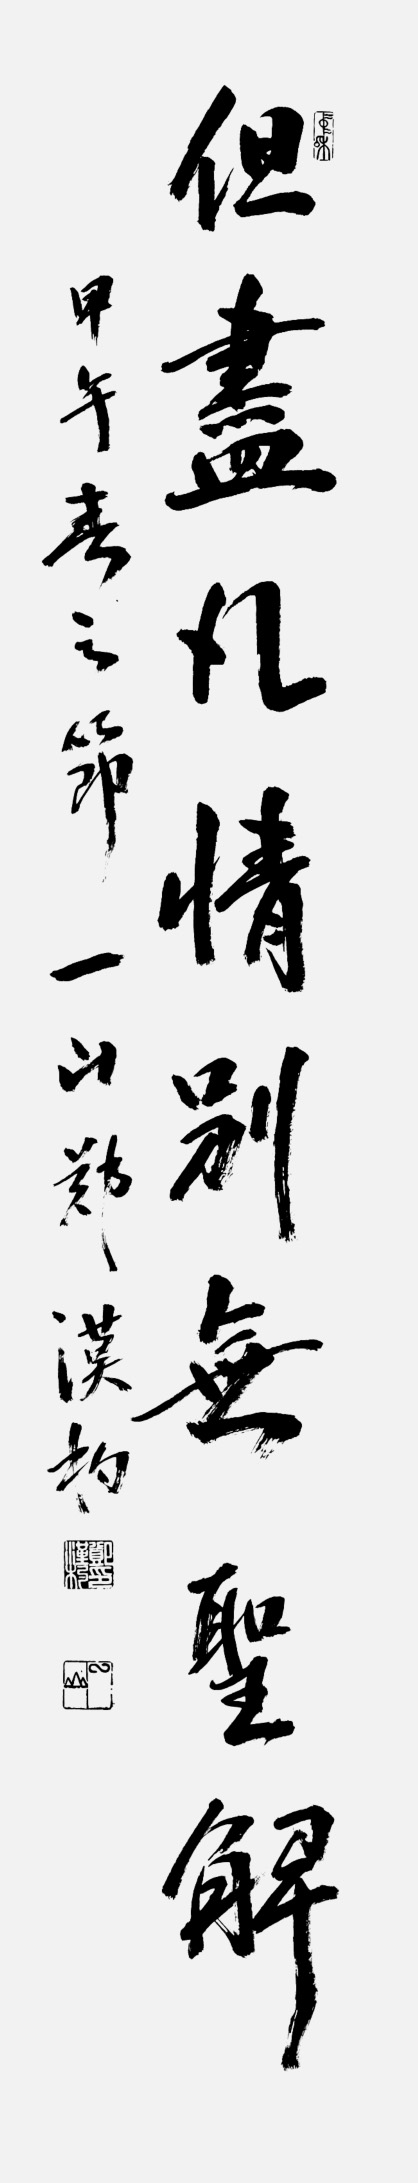 但盡凡情別無聖解
甲午春之節 一山鄭漢均